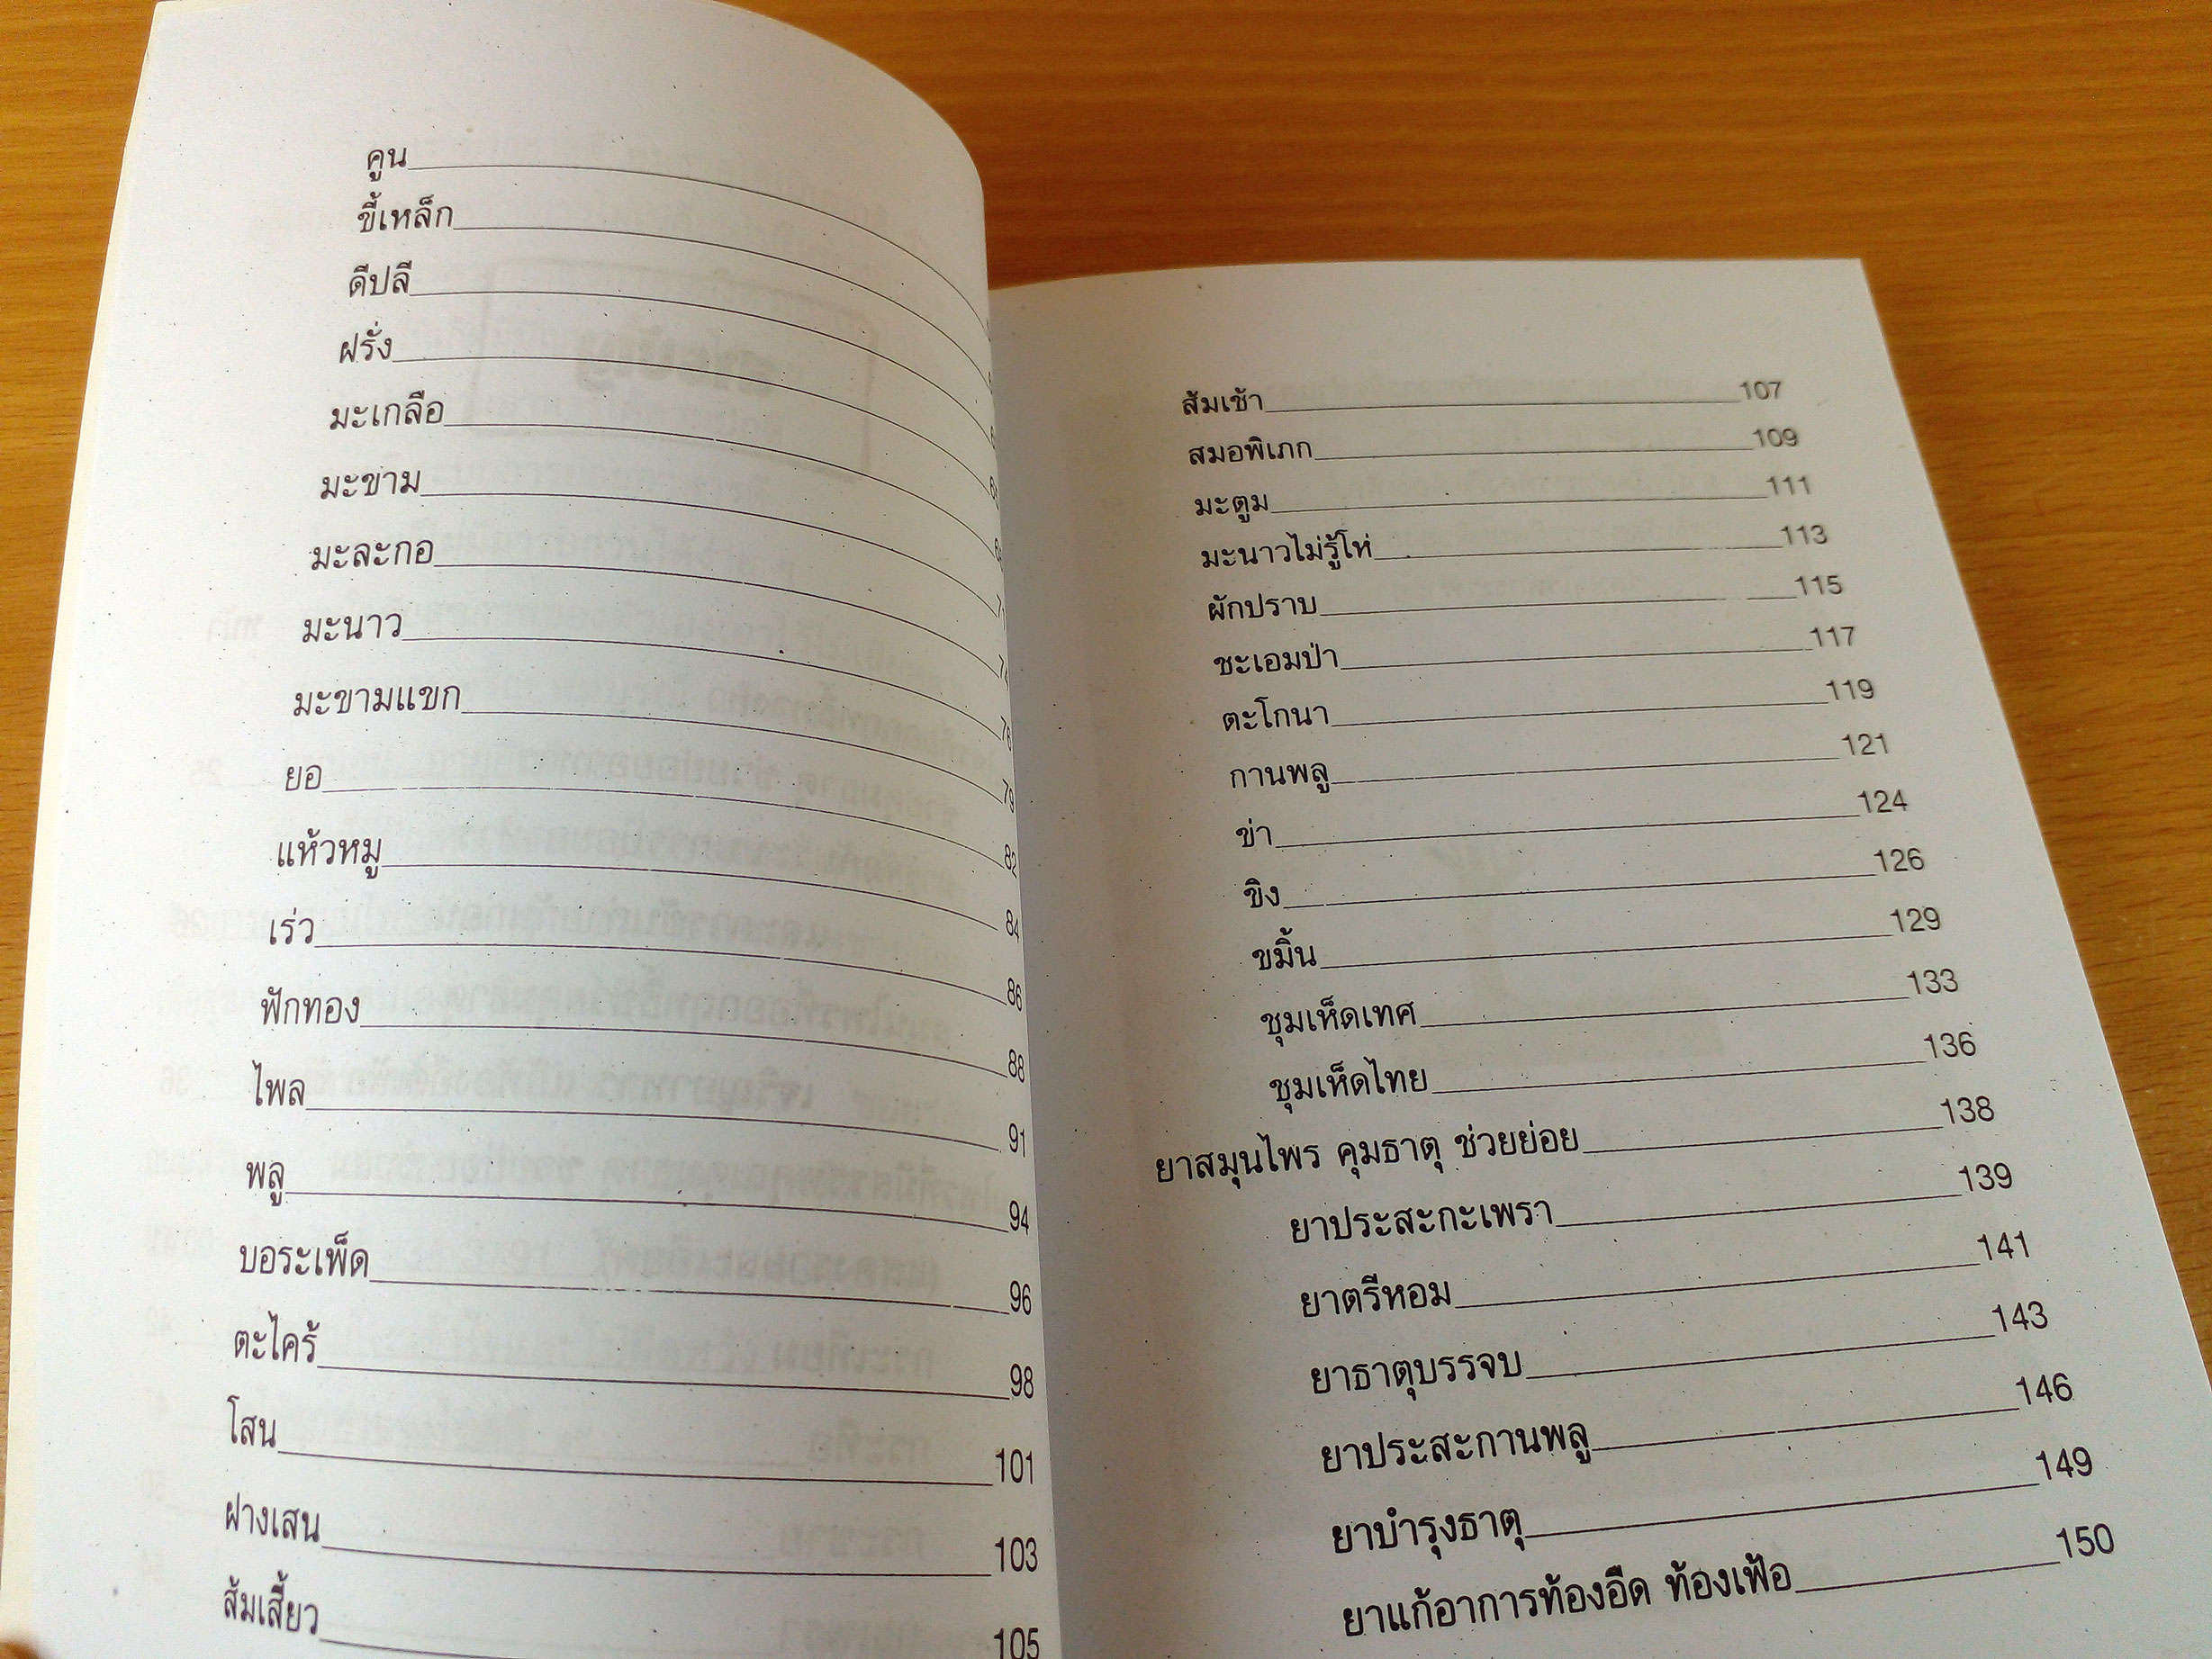 คูน
ขี้เหล็ก
ดีปลี
ฝรั่ง
มะเกลือ
มะขาม
มะละกอ
มะนาว
มะขามแขก
ยอ 79
แห้วหมู 82
เร่ว 84
ฟักทอง 86
ไพล 88
พลู 91
บอระเพ็ด 94
ตะไคร้ 96
โสน 98
ฝางเสน 101
ส้มเสี้ยว 103
105
ส้มเช้า 107
สมอพิเภก 109
มะตูม 111
มะนาวไม่รู้โห่ 113
ผักปราบ 115
ชะเอมป่า 117
ตะโกนา 119
กานพลู 121
ข่า 124
ขิง 126
ขมิ้น 129
ชุมเห็ดเทศ 133
ชุมเห็ดไทย 136
ยาสมุนไพร คุมธาตุ ช่วยย่อย 138
ยาประสะกะเพรา 139
ยาตรีหอม 141
ยาธาตุบรรจบ 143
ยาประสะกานพลู 146
ยาบำรุงธาตุ 149
ยาแก้อาการท้องอืด ท้องเฟ้อ 150